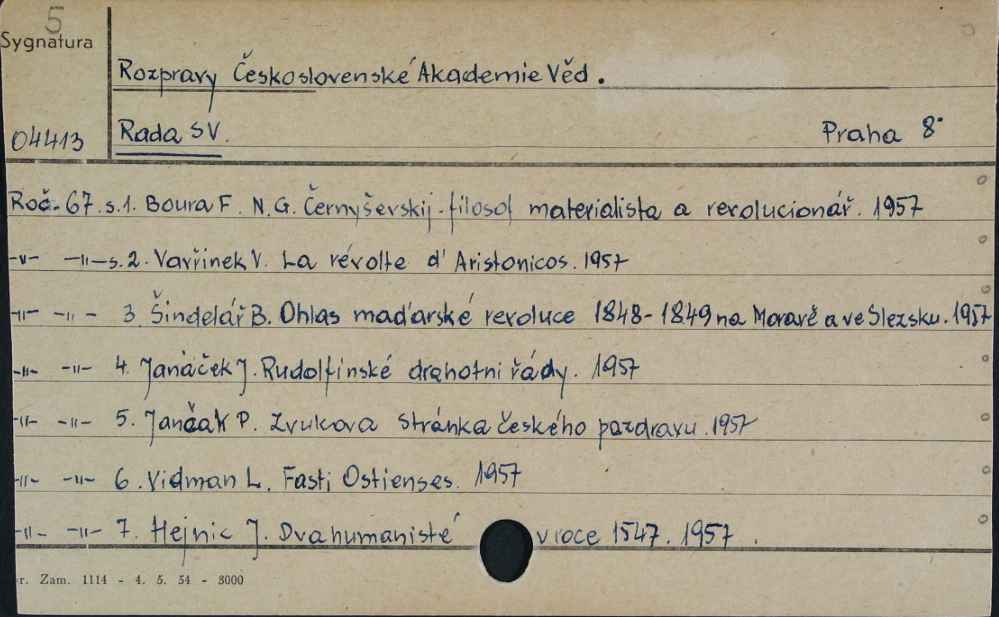 5
Sygnatura
Rozpravy Československé Akademie Věd.
04413 Rada SV. Praha 8°
Roč. 67. s.1. Boura F. N.G. Černyševskij - filosof materialista a revolucionář. 1957
-v- -11- s.2. Vavřinek V. La révolte d' Aristonicos. 1957
-11- -11- 3. Šindelář B. Ohlas maďarské revoluce 1848-1849 na Moravě a ve Slezsku. 1957
-11- -11- 4. Janáček J. Rudolfinské drahotni řády. 1957
-11- -11- 5. Jančak P. Zvukova stránka českého pozdravu. 1957
-11- -11- 6. Vidman L. Fasti Ostienses. 1957
-11- -11- 7. Hejnic J. Dva humanisté v roce 1547. 1957.
r. Zam. 1114 - 4. 5. 54 - 8000